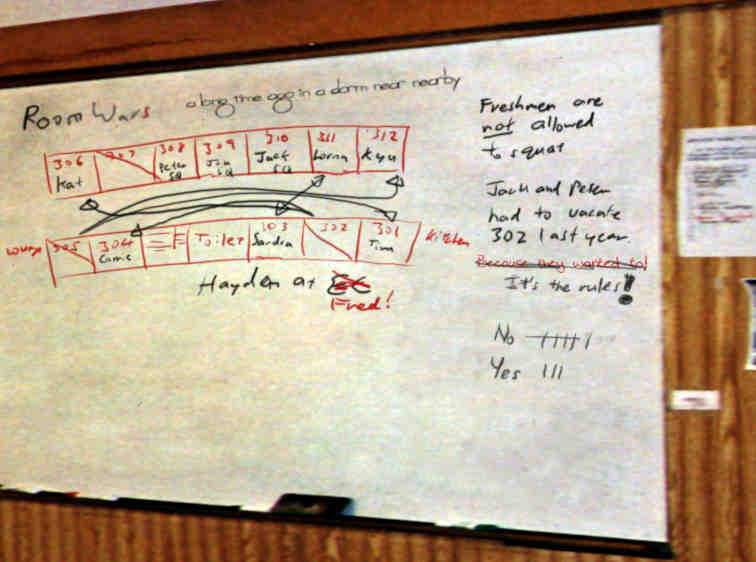 Room Wars a long time ago in a dorm near nearby
306 307 308 309 310 311 312
Kat Peter Jon Jack Lorna Kyu
SQ SQ SQ
Lounge 305 304 Toilet 303 302 301 Kitchen
Carrie Sandra Tim
Hayden at
Fred!
Freshmen are
not allowed
to squat
Jack and Peter
had to vacate
302 last year.
Because they wanted to!
It's the rules!
No
Yes